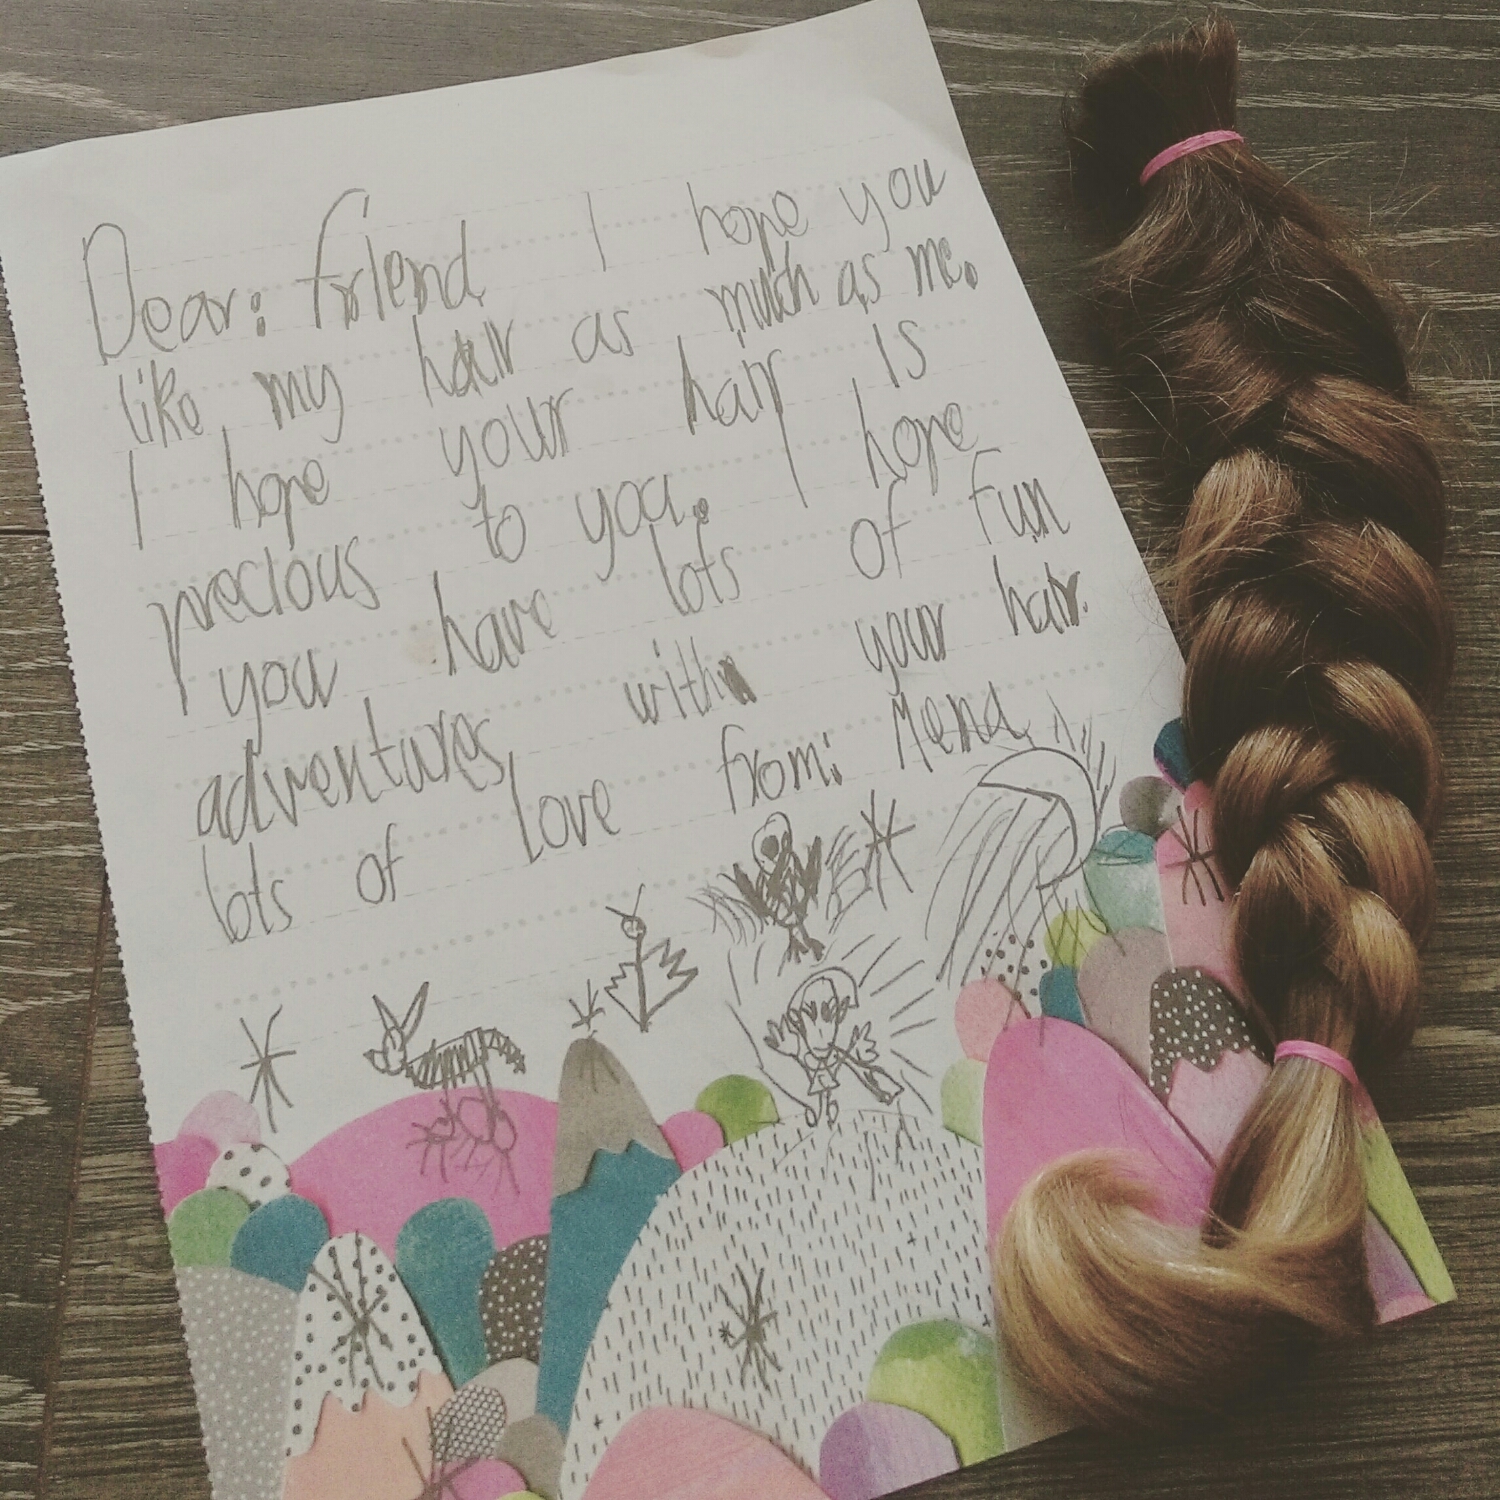 Dear: friend I hope you
like my hair as much as me.
I hope your hair is
precious to you. I hope
you have lots of fun
adventures with your hair.
lots of love from: Mena